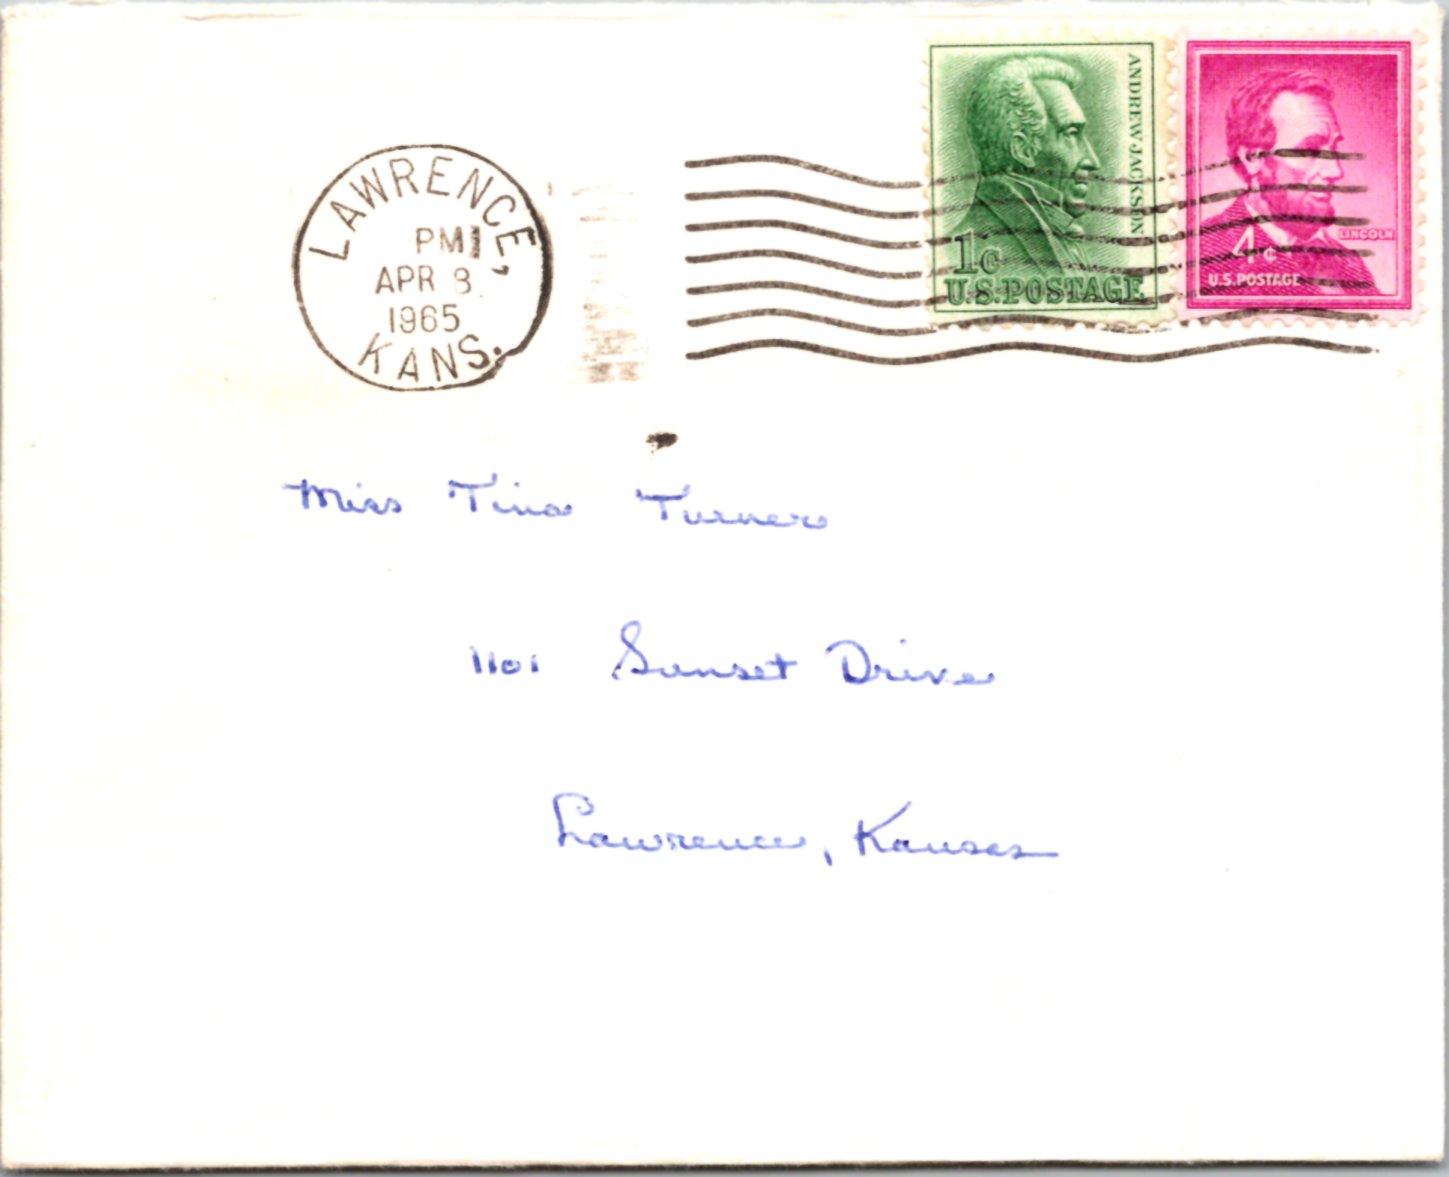 LAWRENCE,
PM
APR 8
1965
KANS.
ANDREW JACKSON
1¢
U.S. POSTAGE
LINCOLN
4¢
U.S. POSTAGE
Miss Tina Turner
1101 Sunset Drive
Lawrence, Kansas